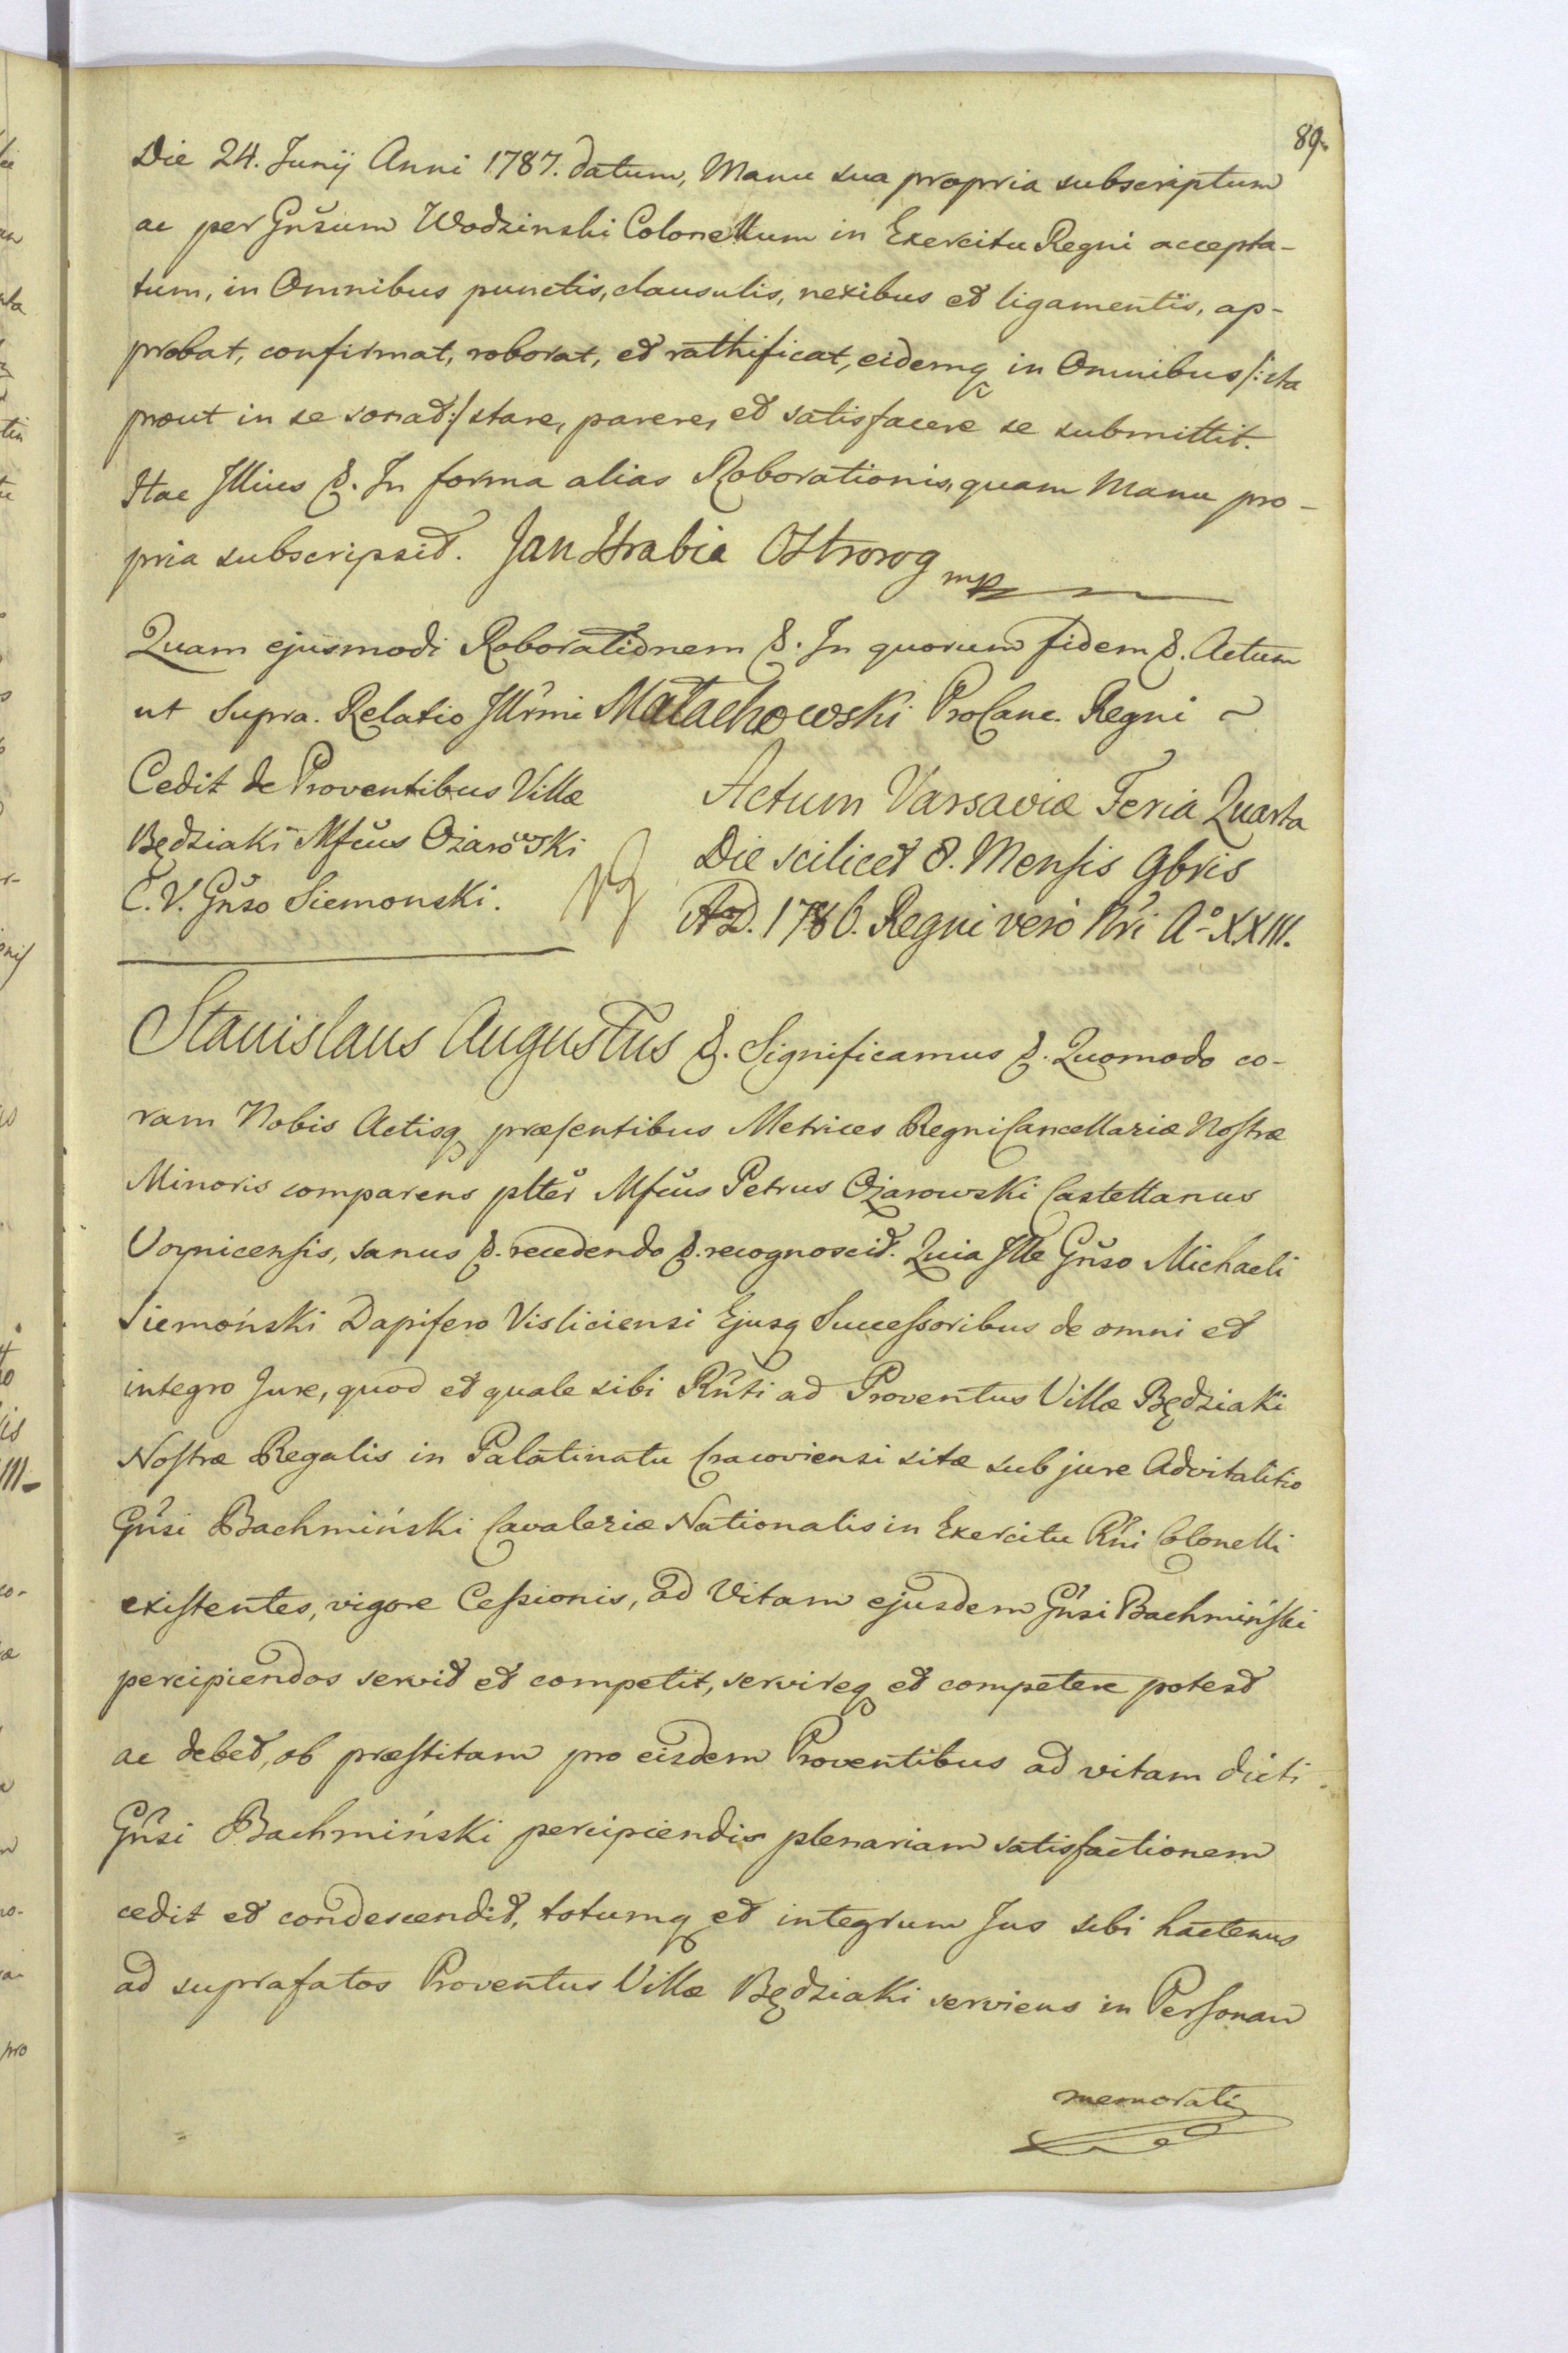 89.
Die 24. Junÿ Anni 1787. datum, Manu sua propria subscriptum
ac per Gnsum Wodzinski Colonellum in Exercitu Regni accepta-
tum, in Omnibus punctis, clausulis, nexibus et ligamentis, ap-
probat, confirmat, roborat, et rathificat, eidemq in Omnibus /: ita
prout in se sonat :/ stare, parere, et satisfacere se submittit.
Hac Illius &. In forma alias Roborationis, quam Manu pro-
pria subscripsit. Jan Hrabia Ostrorog mp
Quam ejusmodi Roborationem &. In quorum fidem &. Actum
ut Supra. Relatio Illrmi Małachowski ProCanc. Regni ~
Cedit de Proventibus Villæ
Będziaki Mfcus Ożarowski
C. V. Gnso Siemonski.
Actum Varsaviæ Feria Quarta
Die scilicet 8. Mensis 9bris
A.D. 1786. Regni vero Nri A° XXIII.
Stanislaus Augustus &. Significamus &. Quomodo co-
ram Nobis Actisq præsentibus Metrices Regni Cancellariæ Nostræ
Minoris comparens plter Mfcus Petrus Ożarowski Castellanus
Voynicensis, sanus &. recedendo &. recognoscit. Quia Ille Gnso Michaeli
Siemoński Dapifero Visliciensi Ejusq Successoribus de omni et
integro Jure, quod et quale sibi Rnti ad Proventus Villæ Będziaki
Nostræ Regalis in Palatinatu Cracoviensi sitæ sub jure Advitalitio
Gnsi Bachmiński Cavaleriæ Nationalis in Exercitu Rni Colonelli
existentes, vigore Cessionis, ad Vitam ejusdem Gnsi Bachmiński
percipiendos servit et competit, servireq et competere potest
ac debet, ob præstitam pro eisdem Proventibus ad vitam dicti
Gnsi Bachmiński percipiendis plenariam satisfactionem
cedit et condescendit, totumq et integrum Jus sibi hactenus
ad suprafatos Proventus Villæ Będziaki serviens in Personam
memorati